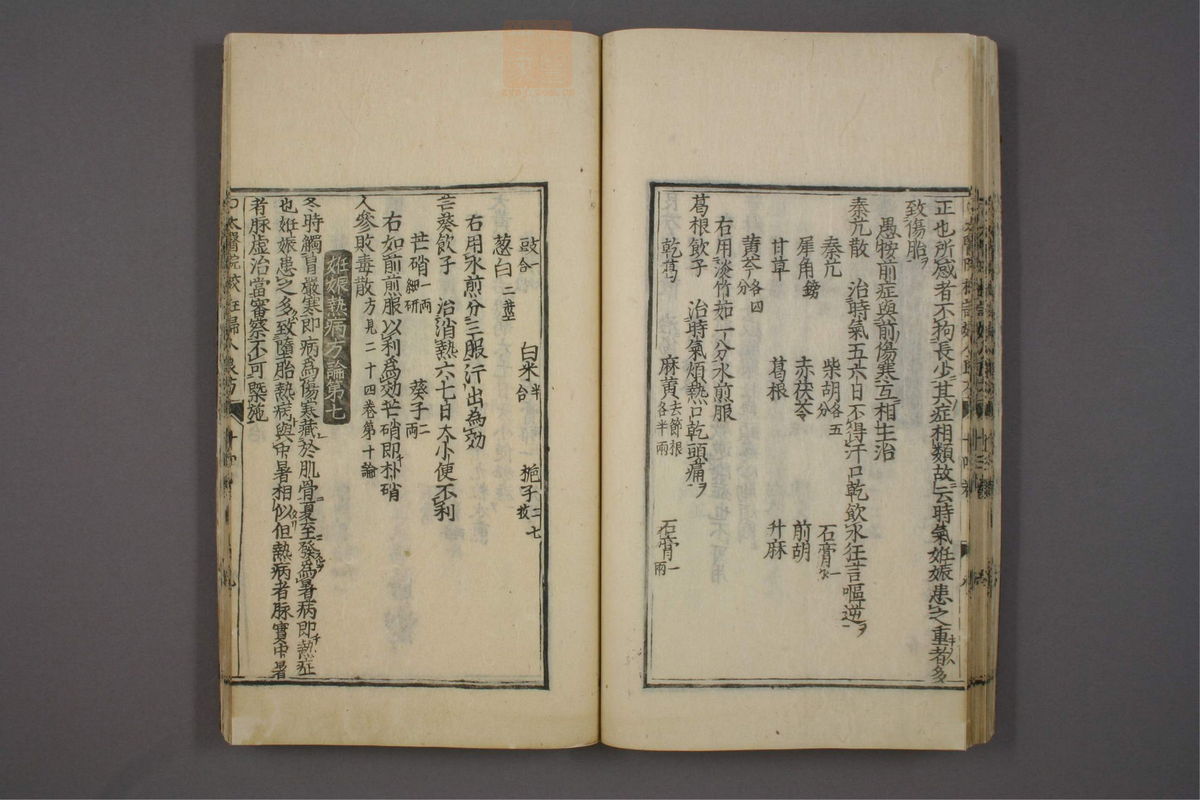 正也所感者不拘長少其症相類故云時氣妊娠患之重者多
致傷胎ヲ
愚按前症與前傷寒互相主治
秦艽散　治時氣五六日不得汗口乾飲水狂言嘔逆ヲ
秦艽　柴胡各五分　石膏一
犀角鎊　赤茯苓　前胡
甘草　葛根　升麻
黄芩各四分
右用淡竹茹一分水煎服
葛根飲子　治時氣煩熱口乾頭痛ヲ
乾葛　麻黄去節根各半兩　石膏一兩
豉一合　白米半合　梔子二七枚
葱白二莖
右用水煎分三服汗出為効
苦葵飲子　治消熱六七日大小便不利
芒硝一兩細研　葵子二兩
右如前煎服以利為効芒硝即朴硝
人參敗毒散方見二十四卷第十論
妊娠熱病方論第七
冬時觸冒嚴寒即病為傷寒藏於肌骨夏至發為暑病即熱症
也妊娠患之多致墮胎熱病與中暑相似但熱病者脉實中暑
者脉虚治當審察不可槩施
太醫院校註婦人良方